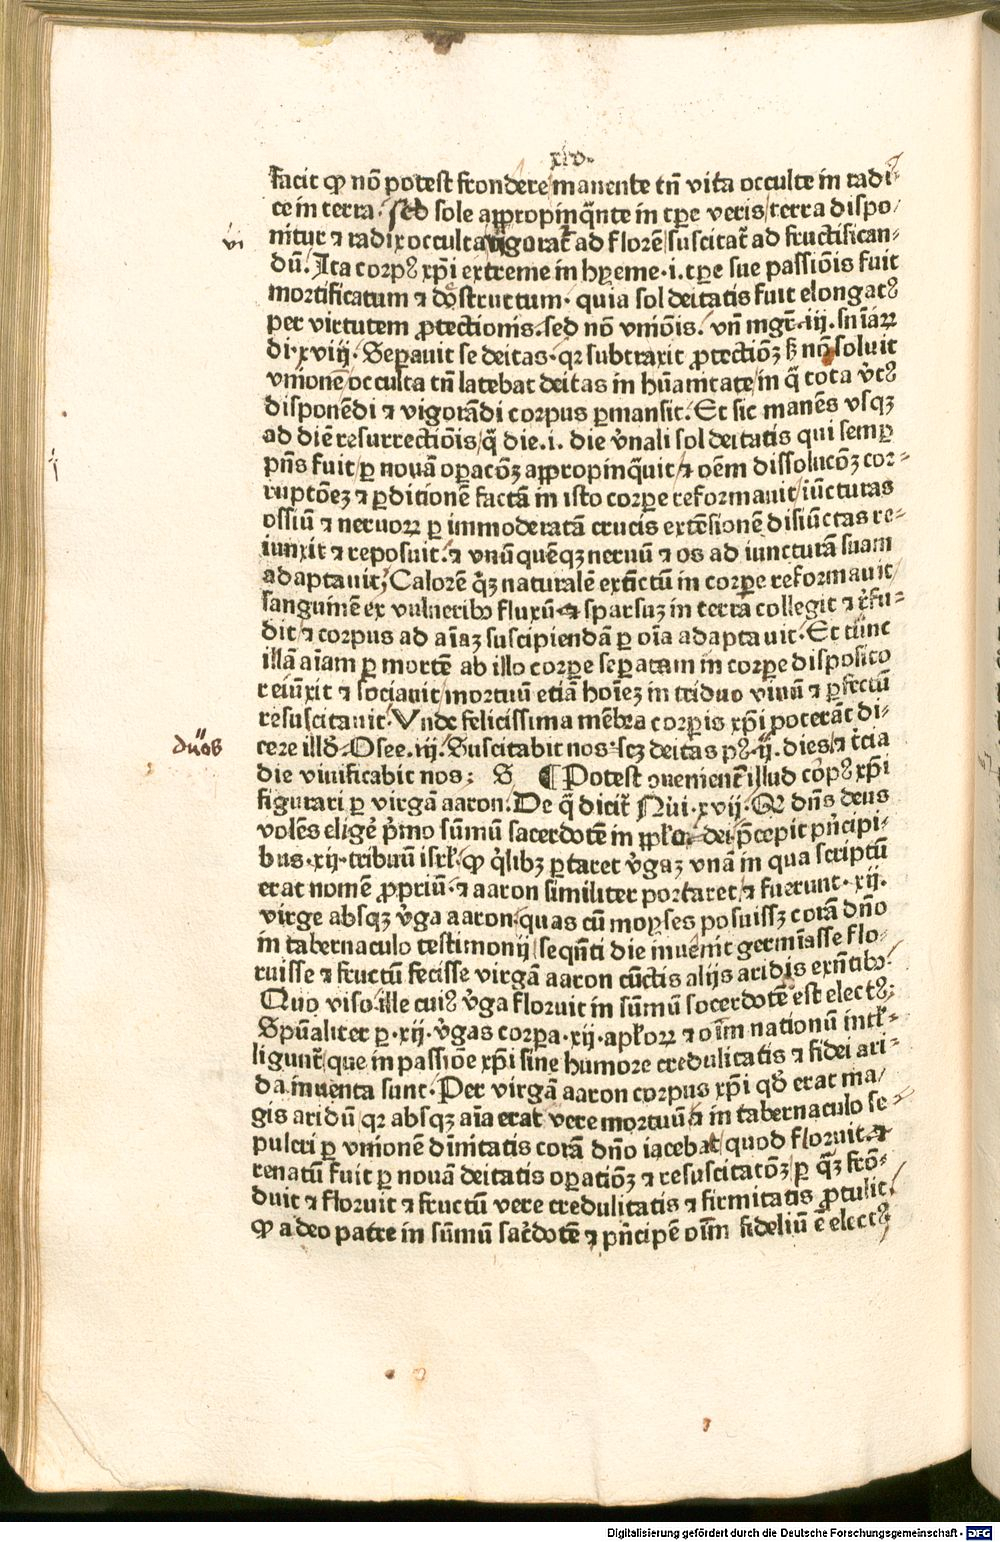 xiv.
facit ꝙ nō potest frondere/manente tn̄ vita occulte in radi-
ce in terra. Sed sole aꝓpropinq̄nte in tꝑe veris/terra dispo/
vi
nitur ⁊ radix occulta vigorat᷑ ad florē/suscitat᷑ ad fructifican-
dū. Ita corpꝰ xp̄i extreme in hyeme .i. tꝑe sue passiōis fuit
mortificatum ⁊ destructum. quia sol deitatis fuit elongatꝰ
per virtutem ꝓtectionis. sed nō vniōis. vn̄ mgr̄. iij. sn̄iaꝝ
di. xviij. Seꝑauit se deitas. qꝛ subtraxit ꝓtectiōꝫ sꝫ nō soluit
vnionē/occulta tn̄ latebat deitas in hūanitate/in q̄ tota v̓tꝰ
disponēdi ⁊ vigorādi corpus ꝑmansit. Et sic manēs vsqꝫ
ad diē resurrectiōis/q̄ die .i. die v̓nali sol deitatis qui semꝑ
pn̄s fuit/ꝑ nouā oꝑacōꝫ appropinq̄uit/⁊ oēm dissolucōꝫ cor-
ruptōeꝫ ⁊ ꝑditionē factā in isto corꝑe reformauit/iūcturas
ossiū ⁊ neruoꝝ ꝑ immoderatā crucis extēsionē disiūctas re-
iunxit ⁊ reposuit. ⁊ vnūquēqꝫ neruū ⁊ os ad iuncturā suam
adaptauit/Calorē q̄ꝫ naturalē extīctū in corꝑe reformauit/
sanguinē ex vulneribꝰ fluxū ⁊ sparsuꝫ in terra collegit ⁊ r̓fu-
dit/⁊ corpus ad aīaꝫ suscipiendā ꝑ oīa adaptauit. Et tūnc
illā aīam ꝑ mortē ab illo corꝑe seꝑatam in corꝑe disposito
reiūxit ⁊ sociauit/mortuū etiā hoīeꝫ in triduo viuū ⁊ ꝑfectū
resuscitauit. Vnde felicissima mēbra corꝑis xp̄i poterāt di-
duos
cere illd̓. Osee. iij. Suscitabit nos scꝫ deitas pꝰ .ij. dies/⁊ t̓cia
die viuificabit nos: S ¶ Potest ꝯuenient᷑ illud cōpꝰ xp̄i
figurari ꝑ virgā aaron. De q̄ dicit᷑ Nūi. xvij. Qꝫ dn̄s deus
volēs elige᷑ p̓mo sūmū sacerdotē in ppl̓o dei p̄cepit pn̓cipi-
bus .xij. tribuū isrl̓. ꝙ q̓libꝫ ꝑtaret v̓gaꝫ vnā in qua scriptū
erat nomē ꝓpriū. ⁊ aaron similiter portaret/⁊ fuerunt .xij.
virge absqꝫ v̓ga aaron/quas cū moyses posuissꝫ corā dn̄o
in tabernaculo testimonij/seqn̄ti die inuenit germīasse flo-
ruisse ⁊ fructū fecisse virgā aaron cūctis alijs aridis exn̄tibꝰ.
Quo viso ille cuiꝰ v̓ga floruit in sūmū socerdotē est electꝰ;
Spūaliter ꝑ .xij. v̓gas corpa .xij. apl̓oꝝ ⁊ oīm nationū intl̓-
ligunt᷑/que in passiōe xp̄i sine humore credulitatis ⁊ fidei ari-
da inuenta sunt. Per virgā aaron corpus xp̄i qd̓ erat ma/
gis aridū/qꝛ absqꝫ aīa erat vere mortuū ⁊ in tabernaculo se-
pulcri ꝑ vnionē diītatis corā dn̄o iacebat/quod floruit ⁊
renatū fuit ꝑ nouā deitatis oꝑatiōꝫ ⁊ resuscitatōꝫ/ꝑ q̄ꝫ frō-
duit ⁊ floruit ⁊ fructū vere credulitatis ⁊ firmitatis ꝓtulit/
ꝙ a deo patre in sūmū sac̓dotē ⁊ pn̓cipē oīm fideliū ē electꝰ
Digitalisierung gefördert durch die Deutsche Forschungsgemeinschaft - DFG